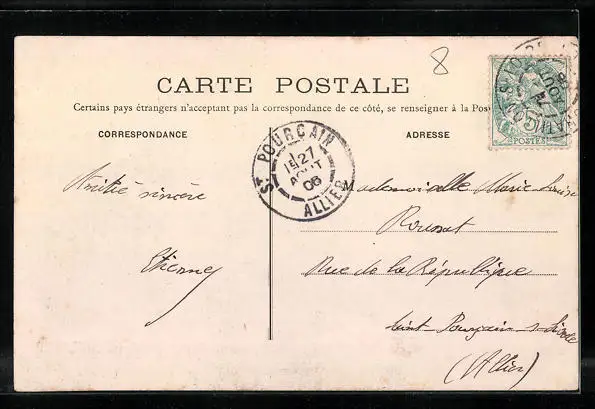 8
CARTE POSTALE
Certains pays étrangers n'acceptant pas la correspondance de ce côté, se renseigner à la
CORRESPONDANCE
ADRESSE
5
POSTES
ST POURÇAIN
27
AOUT
06
ALLIER
Amitié sincère
Etienne
M Mademoiselle Marie-Louise
Rue de la République
Saint Pourçain s. Sioule
(Allier)